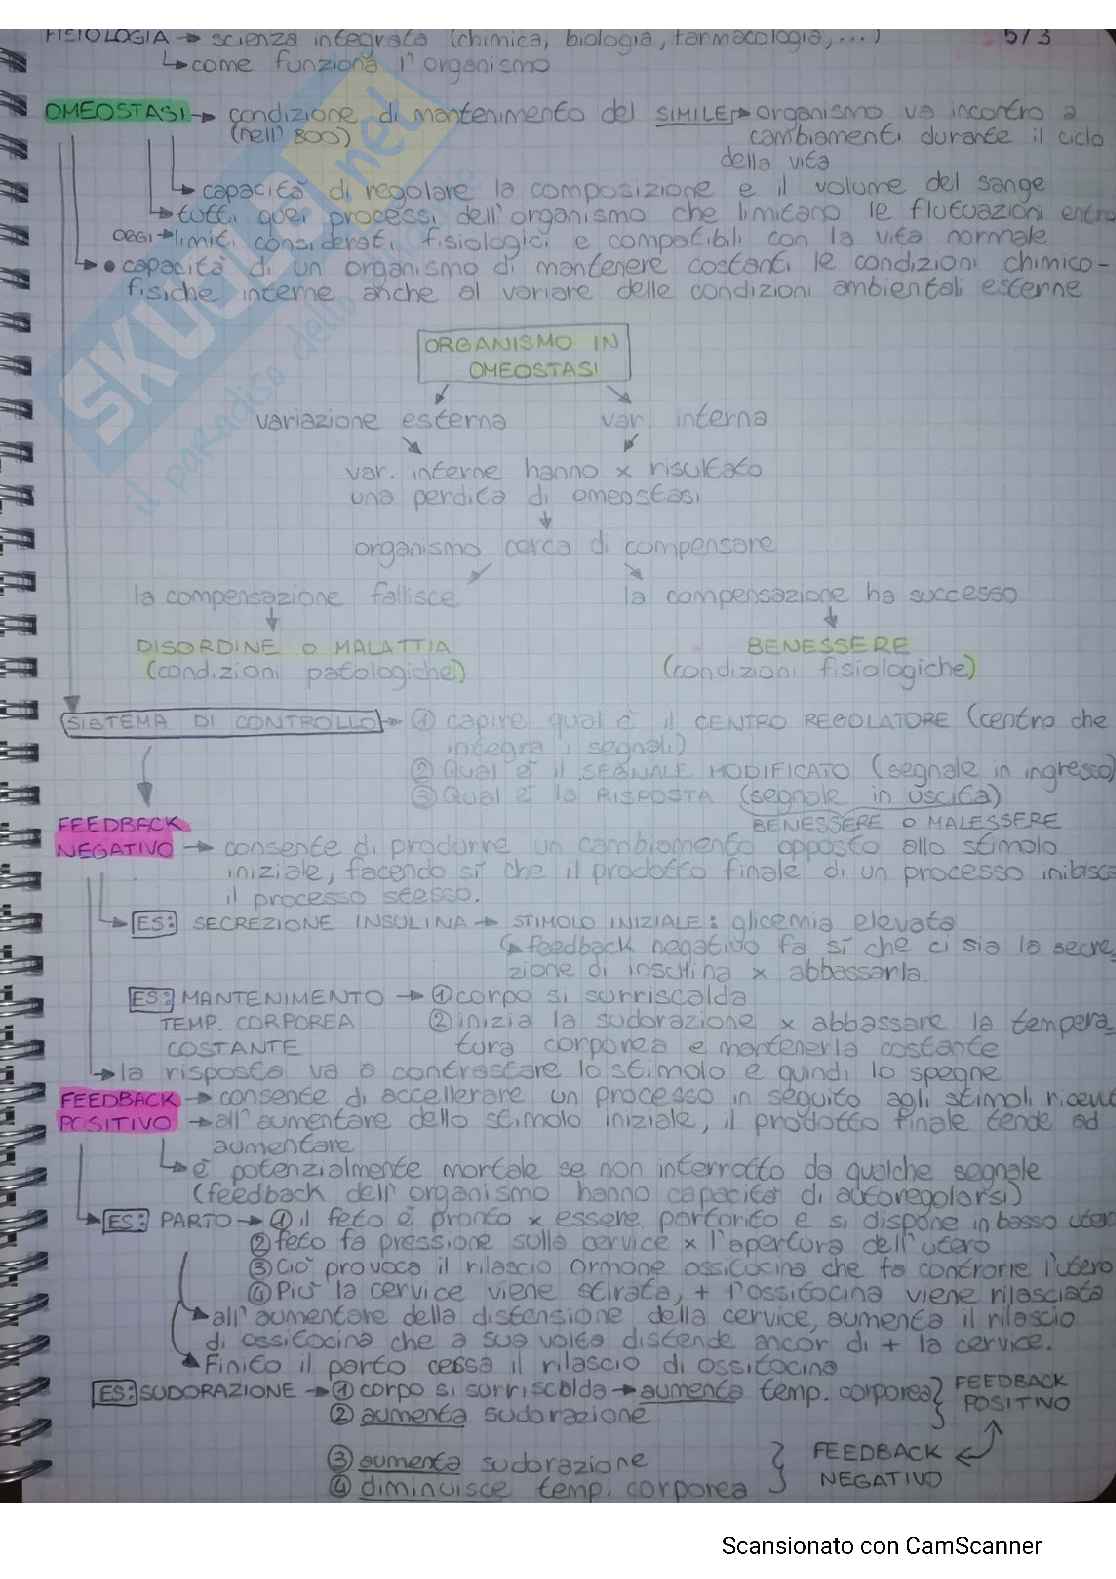 FISIOLOGIA → scienza integrata (chimica, biologia, farmacologia, ...) 5/3
↳ come funziona l'organismo
OMEOSTASI → condizione di mantenimento del SIMILE → organismo va incontro a
(nell' 800) cambiamenti durante il ciclo
della vita
↳ capacità di regolare la composizione e il volume del sange
↳ tutti quei processi dell'organismo che limitano le flutuazioni entro
OGGI → limiti considerati fisiologici e compatibili con la vita normale
↳ • capacità di un organismo di mantenere costanti le condizioni chimico-
fisiche interne anche al variare delle condizioni ambientali esterne
ORGANISMO IN
OMEOSTASI
variazione esterna var. interna
var. interne hanno x risultato
una perdita di omeostasi
organismo cerca di compensare
la compensazione fallisce la compensazione ha successo
DISORDINE O MALATTIA BENESSERE
(condizioni patologiche) (condizioni fisiologiche)
SISTEMA DI CONTROLLO → ① capire qual è il CENTRO REGOLATORE (centro che
integra i segnali)
② Qual è il SEGNALE MODIFICATO (segnale in ingresso)
③ Qual è la RISPOSTA (segnale in uscita)
BENESSERE O MALESSERE
FEEDBACK
NEGATIVO → consente di produrre un cambiamento opposto allo stimolo
iniziale, facendo sì che il prodotto finale di un processo inibisca
il processo stesso.
↳ ES: SECREZIONE INSULINA → STIMOLO INIZIALE: glicemia elevata
↳ feedback negativo fa sì che ci sia la secre
zione di insulina x abbassarla.
ES: MANTENIMENTO → ① corpo si surriscalda
TEMP. CORPOREA ② inizia la sudorazione x abbassare la tempera
COSTANTE tura corporea e mantenerla costante
↳ la risposta va a contrastare lo stimolo e quindi lo spegne
FEEDBACK → consente di accellerare un processo in seguito agli stimoli ricevu
POSITIVO → all'aumentare dello stimolo iniziale, il prodotto finale tende ad
aumentare
↳ è potenzialmente mortale se non interrotto da qualche segnale
(feedback dell'organismo hanno capacità di autoregolarsi)
↳ ES: PARTO → ① il feto è pronto x essere partorito e si dispone in basso uter
② feto fa pressione sulla cervice x l'apertura dell'utero
③ Ciò provoca il rilascio ormone ossitocina che fa contrarre l'utero
④ Più la cervice viene stirata, + l'ossitocina viene rilasciata
all'aumentare della distensione della cervice, aumenta il rilascio
di ossitocina che a sua volta distende ancor di + la cervice.
Finito il parto cessa il rilascio di ossitocina
ES: SUDORAZIONE → ① corpo si surriscalda → aumenta temp. corporea } FEEDBACK
② aumenta sudorazione POSITIVO
③ aumenta sudorazione } FEEDBACK
④ diminuisce temp. corporea NEGATIVO
SKUOLA.net
il paradiso dello
Scansionato con CamScanner